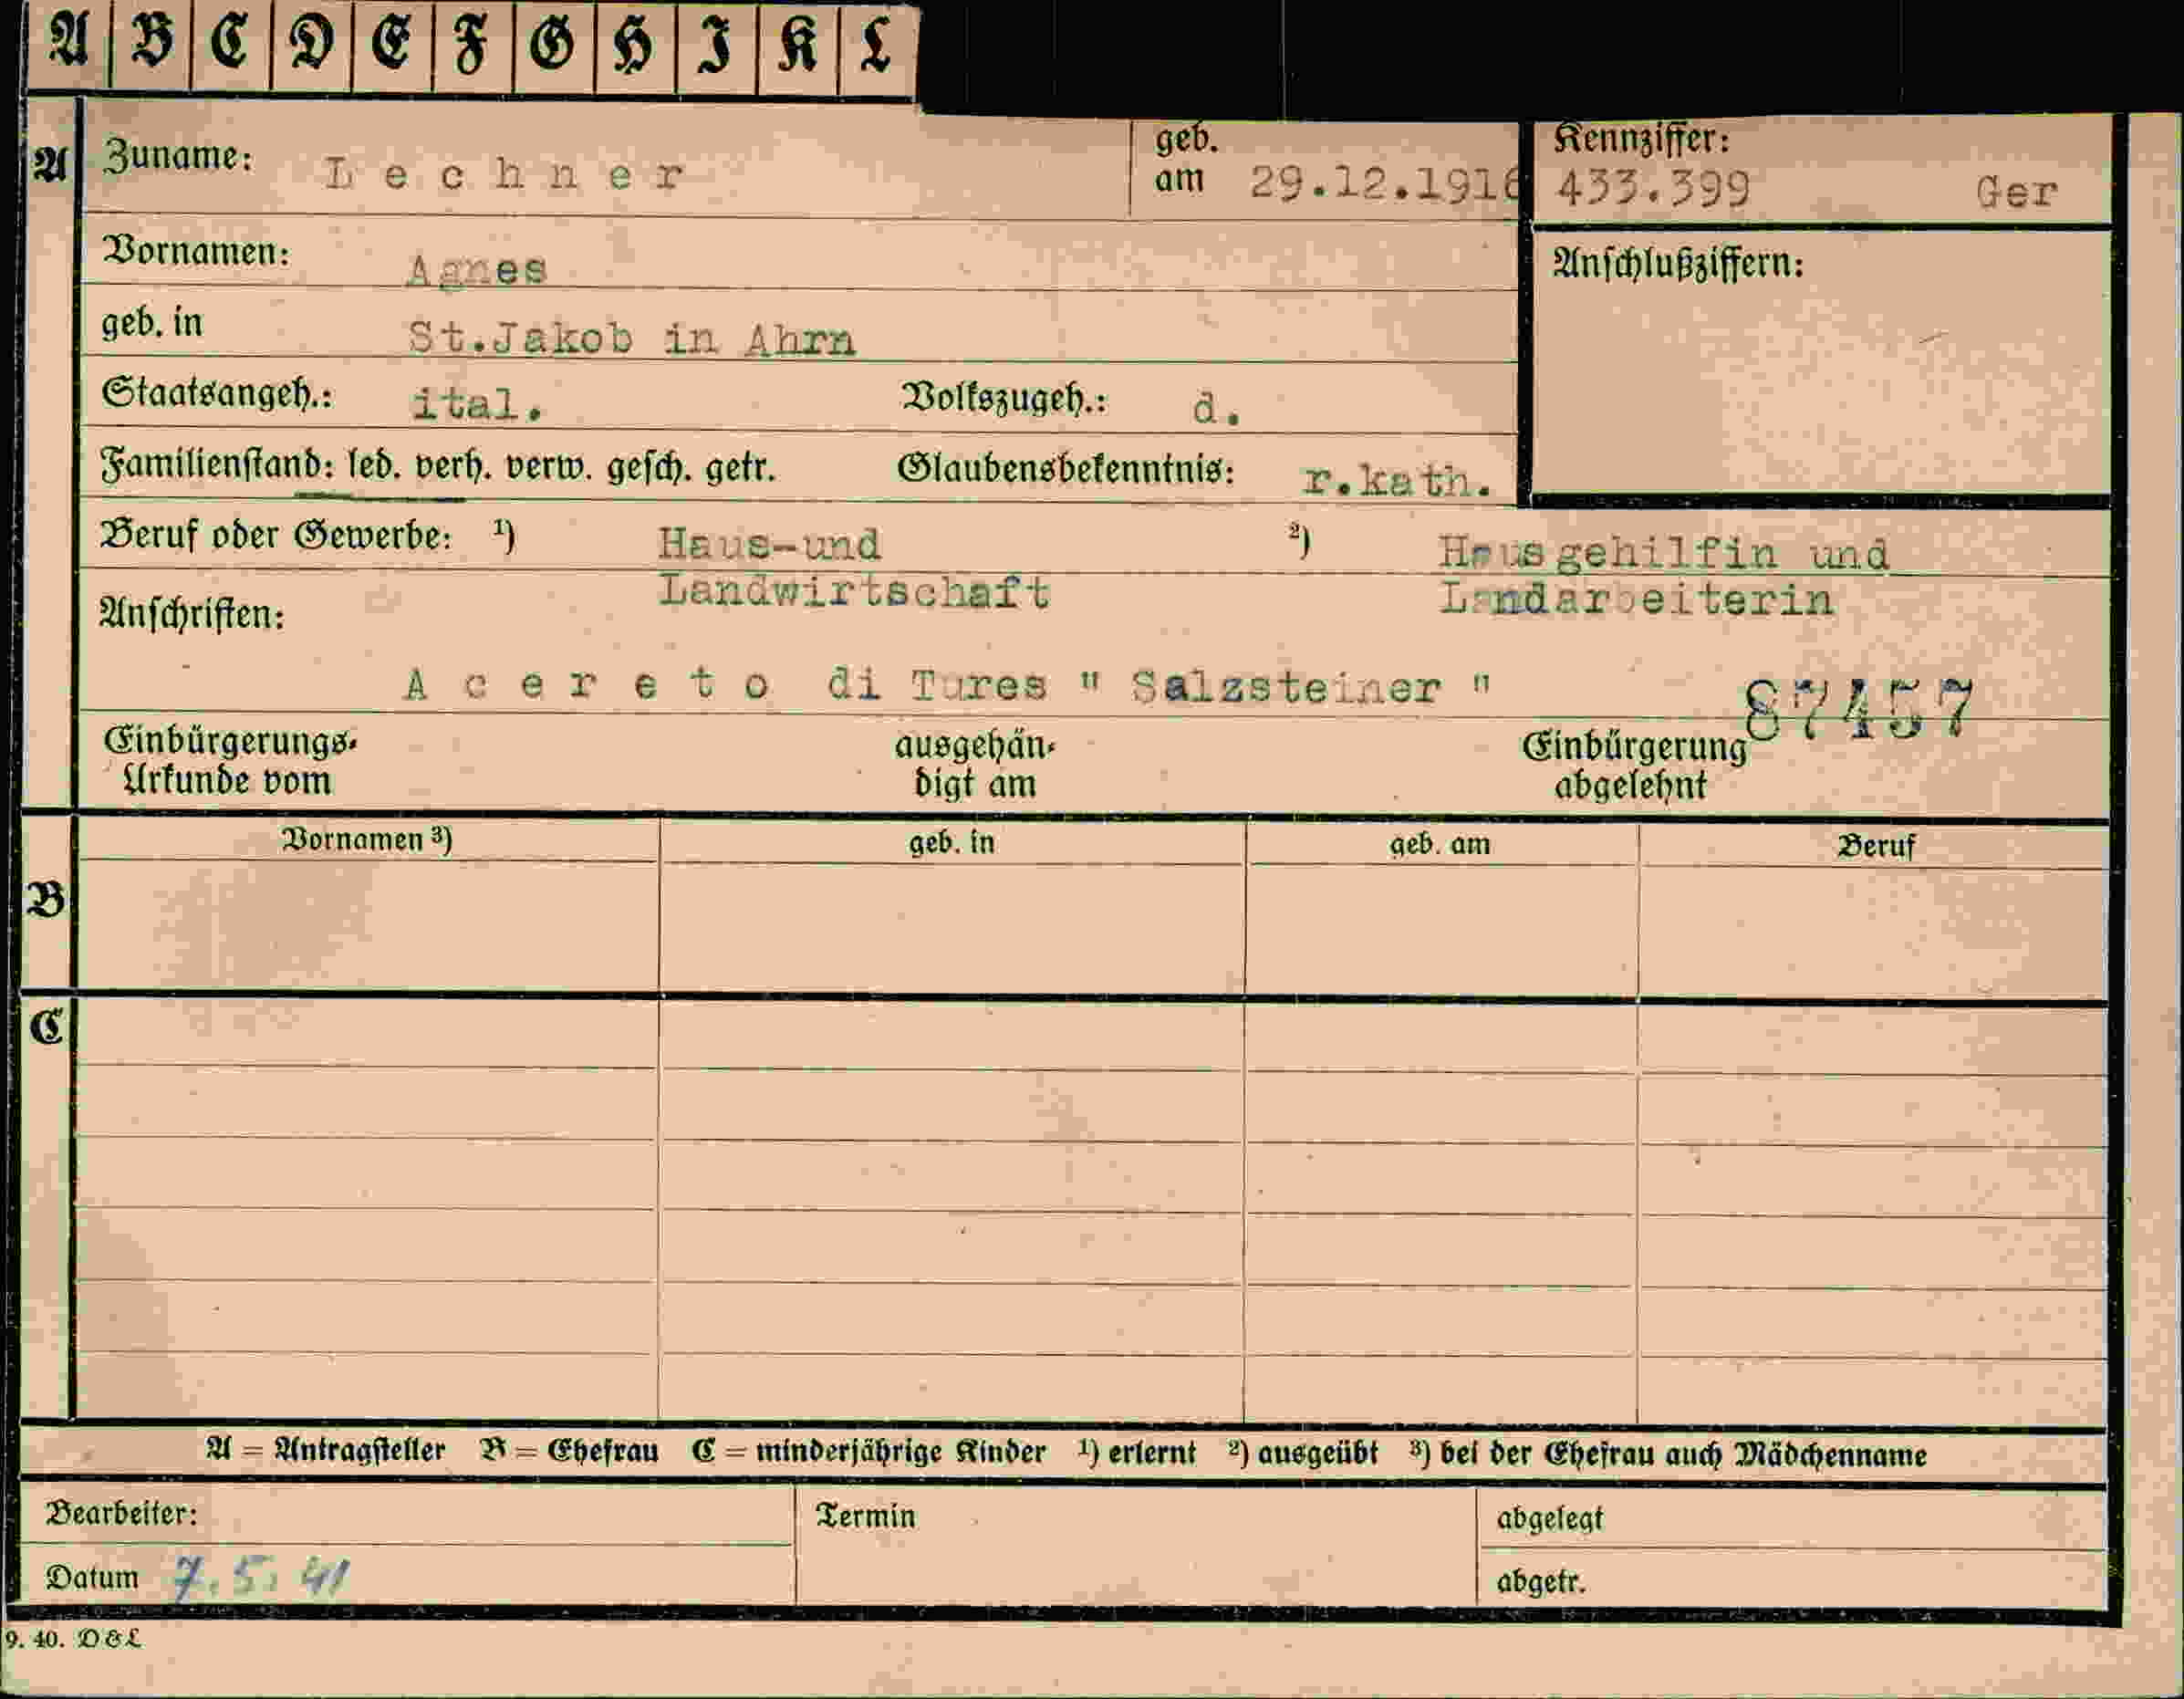 A B C D E F G H I K L
A Zuname: Lechner geb. am 29.12.1916 Kennziffer: 433.399 Ger
Vornamen: Agnes Anschlußziffern:
geb. in St.Jakob in Ahrn
Staatsangeh.: ital. Volkszugeh.: d.
Familienstand: led. verh. verw. gesch. getr. Glaubensbekenntnis: r.kath.
Beruf oder Gewerbe: ¹) Haus-und ²) Hausgehilfin und
Landwirtschaft Landarbeiterin
Anschriften:
Acereto di Tures " Salzsteiner " 87457
Einbürgerungs- ausgehän- Einbürgerung
Urkunde vom digt am abgelehnt
Vornamen ³) geb. in geb. am Beruf
B
C
A = Antragsteller B = Ehefrau C = minderjährige Kinder ¹) erlernt ²) ausgeübt ³) bei der Ehefrau auch Mädchenname
Bearbeiter: Termin abgelegt
Datum 7.5.41 abgetr.
9. 40. D & L